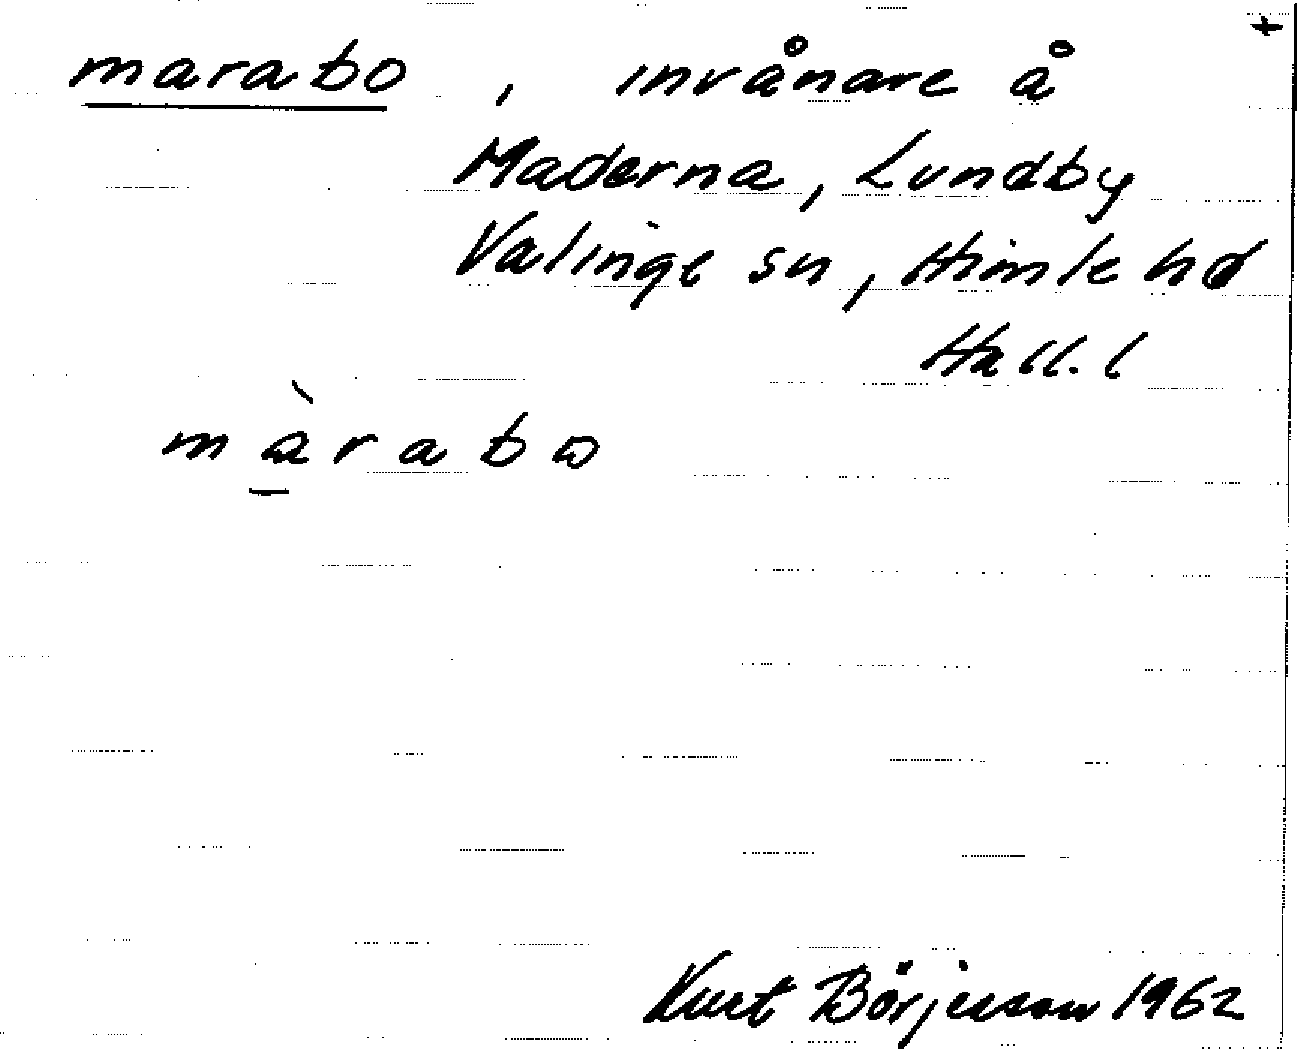 +
marabo, invånare å
Maderna, Lundby
Valinge sn, Himle hd
Hall. l
màrabo
Kurt Börjesson 1962